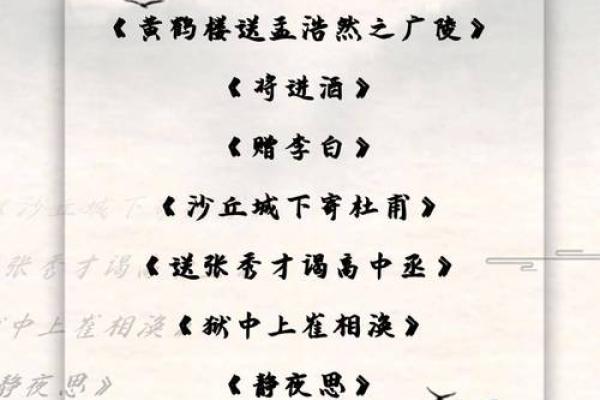 《黄鹤楼送孟浩然之广陵》
《将进酒》
《赠李白》
《沙丘城下寄杜甫》
《送张秀才谒高中丞》
《狱中上崔相涣》
《静夜思》
《沙丘城下
张秀才谒
中上崔相涣》
静夜思》